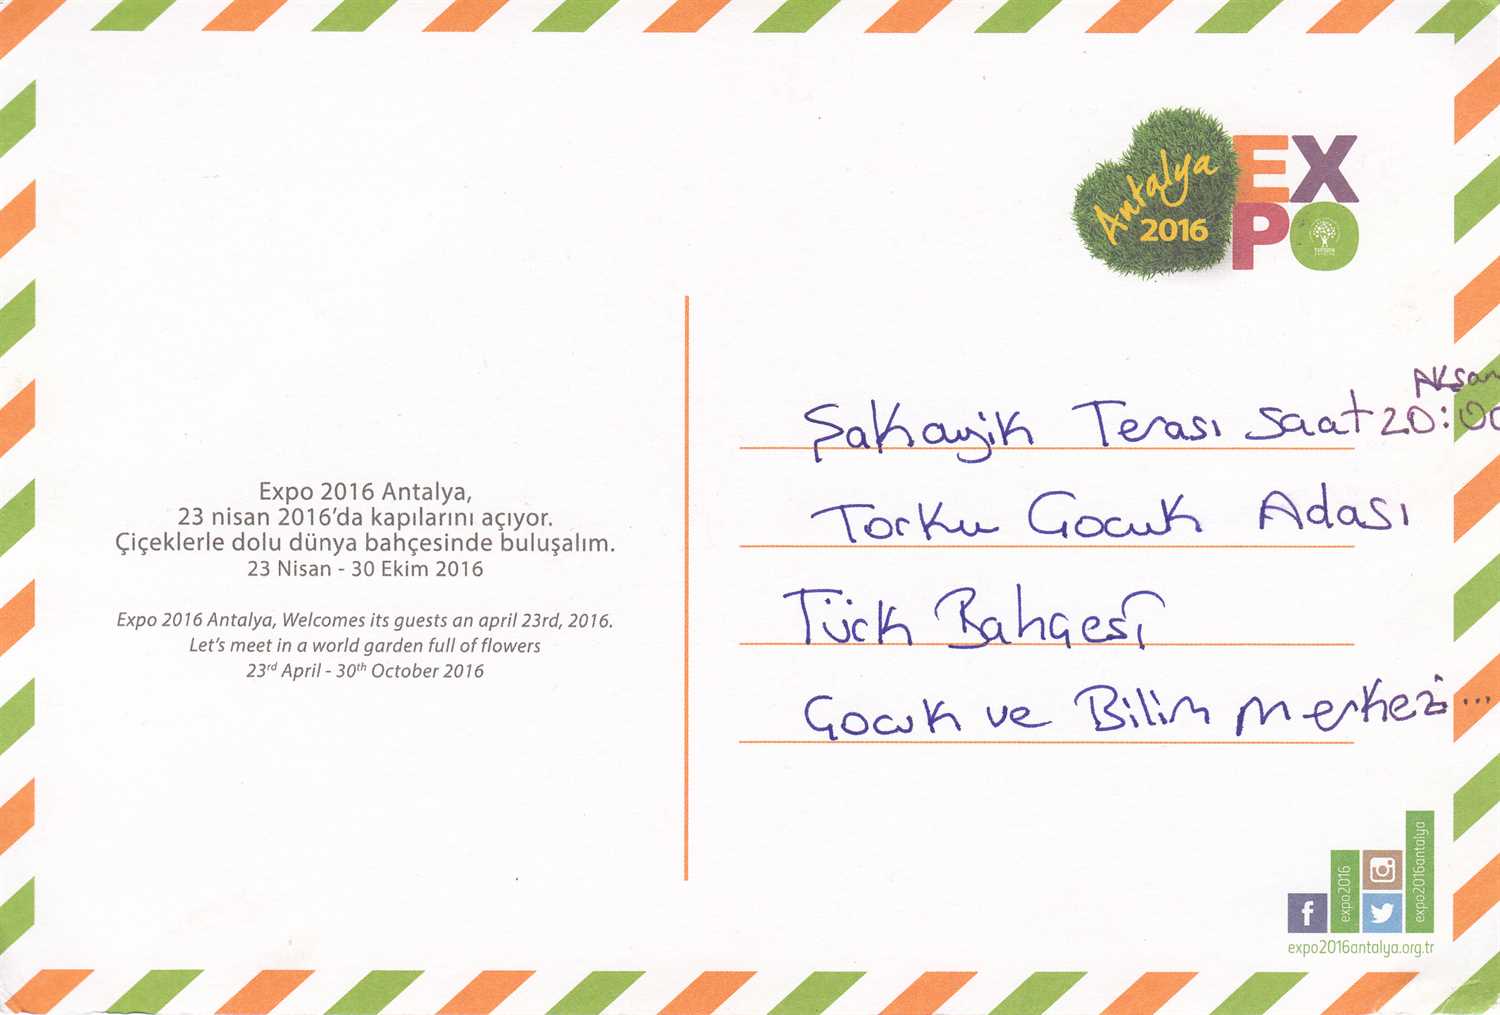 Antalya
2016
EX
PO
Expo 2016 Antalya,
23 nisan 2016'da kapılarını açıyor.
Çiçeklerle dolu dünya bahçesinde buluşalım.
23 Nisan - 30 Ekim 2016
Expo 2016 Antalya, Welcomes its guests an april 23rd, 2016.
Let's meet in a world garden full of flowers
23rd April - 30th October 2016
Akşam
Şakayik Terası saat 20:00
Torku Çocuk Adası
Türk Bahçesi
Çocuk ve Bilim merkezi...
expo2016
expo2016antalya
expo2016antalya.org.tr